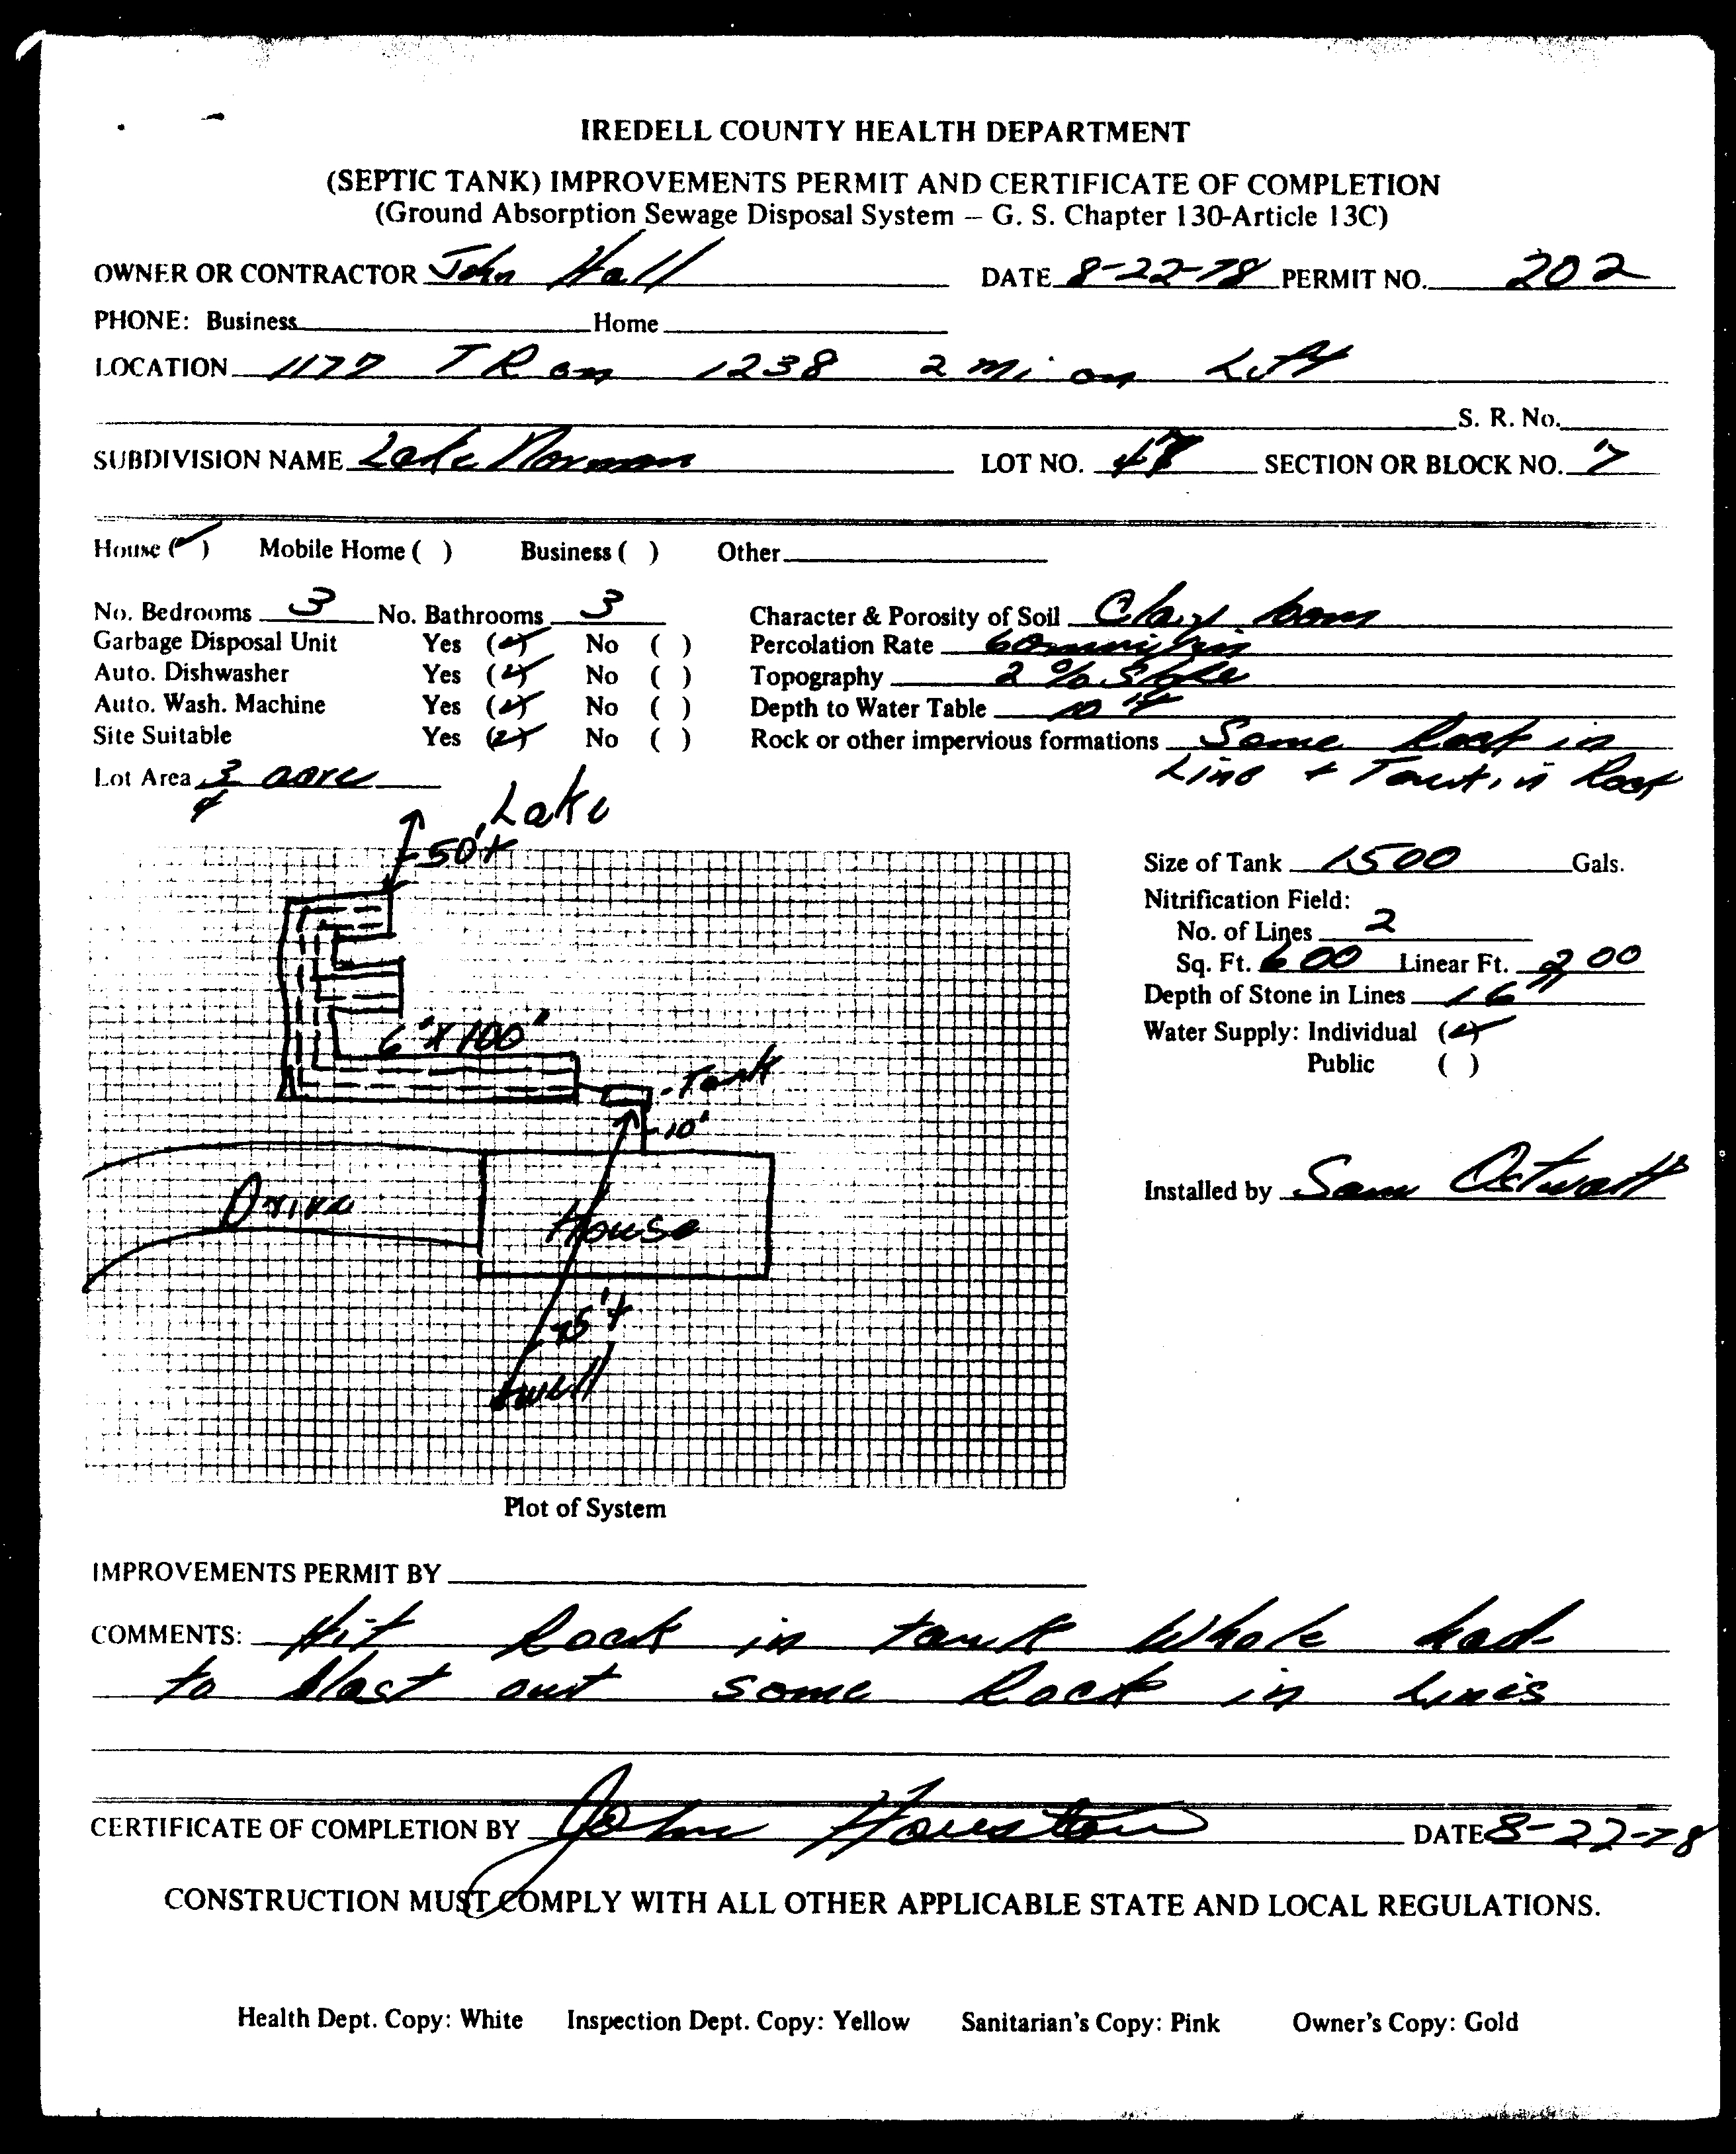 IREDELL COUNTY HEALTH DEPARTMENT
(SEPTIC TANK) IMPROVEMENTS PERMIT AND CERTIFICATE OF COMPLETION
(Ground Absorption Sewage Disposal System – G. S. Chapter 130-Article 13C)
OWNER OR CONTRACTOR John Hall DATE 8-22-78 PERMIT NO. 202
PHONE: Business Home
LOCATION 1177 TR on 1238 2 mi on Left
S. R. No.
SUBDIVISION NAME Lake Norman LOT NO. 48 SECTION OR BLOCK NO. 7
House (✓) Mobile Home ( ) Business ( ) Other
No. Bedrooms 3 No. Bathrooms 3 Character & Porosity of Soil Clay loam
Garbage Disposal Unit Yes (✓) No ( ) Percolation Rate 60 min/in
Auto. Dishwasher Yes (✓) No ( ) Topography 2 % Slope
Auto. Wash. Machine Yes (✓) No ( ) Depth to Water Table 10 ft
Site Suitable Yes (✓) No ( ) Rock or other impervious formations Some Rock in
Lot Area 3/4 acre Line + Tank in Rock
Lake
50'+
Size of Tank 1500 Gals.
Nitrification Field:
No. of Lines 2
Sq. Ft. 600 Linear Ft. 200
Depth of Stone in Lines 16"
6' x 100'
Water Supply: Individual (✓)
Public ( )
- Tank
- 10'
Drive
House
Installed by Sam Ostwalt
75'+
well
Plot of System
IMPROVEMENTS PERMIT BY
COMMENTS: Hit Rock in tank Whole had
to blast out some Rock in Lines
CERTIFICATE OF COMPLETION BY John Houston DATE 8-22-78
CONSTRUCTION MUST COMPLY WITH ALL OTHER APPLICABLE STATE AND LOCAL REGULATIONS.
Health Dept. Copy: White Inspection Dept. Copy: Yellow Sanitarian's Copy: Pink Owner's Copy: Gold